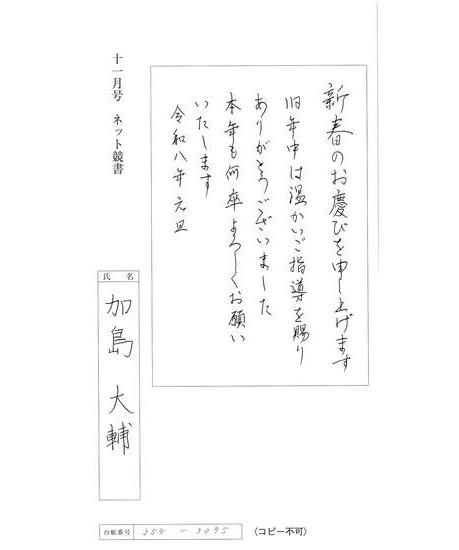 新春のお慶びを申し上げます
旧年中は温かいご指導を賜り
ありがとうございました
本年も何卒よろしくお願い
いたします
令和八年元旦
十一月号 ネット競書
氏名
加島 大輔
台帳番号 253-3095
(コピー不可)